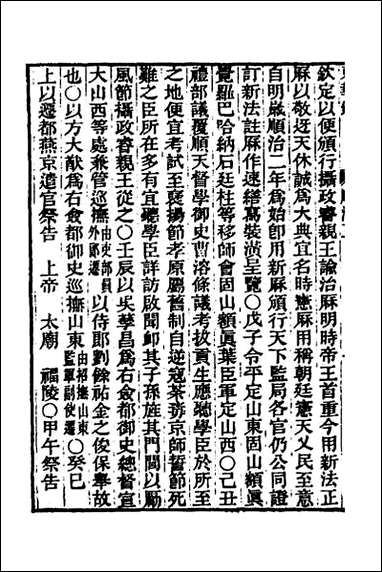 欽定以便頒行攝政睿親王諭治厤明時帝王首重今用新法正
厤以敬迓天休誠爲大典宜名時憲厤用稱朝廷憲天乂民至意
自明嵗順治二年爲始卽用新厤頒行天下監局各官仍公同證
訂新法註厤作速繕寫裝潢呈覽〇戊子令平定山東固山額眞
覺羅巴哈納石廷柱等移師會固山額眞葉臣軍定山西〇己丑
禮部議覆順天督學御史曹溶條議考拔貢生應聽學臣於所至
之地便宜考試至襃揚節孝原屬舊制自逆寇荼毒京師誓節死
難之臣所在多有宜聽學臣詳訪啟聞卹其子孫旌其門閭以勵
風節攝政睿親王從之〇壬辰以吳孳昌爲右僉都御史總督宣
大山西等處兼管巡撫由吏部員外郎遷以侍郎劉餘祐金之俊保舉故
也〇以方大猷爲右僉都御史巡撫山東由招撫山東監軍副使遷〇癸巳
上以遷都燕京遣官祭告 上帝 太廟 福陵〇甲午祭告